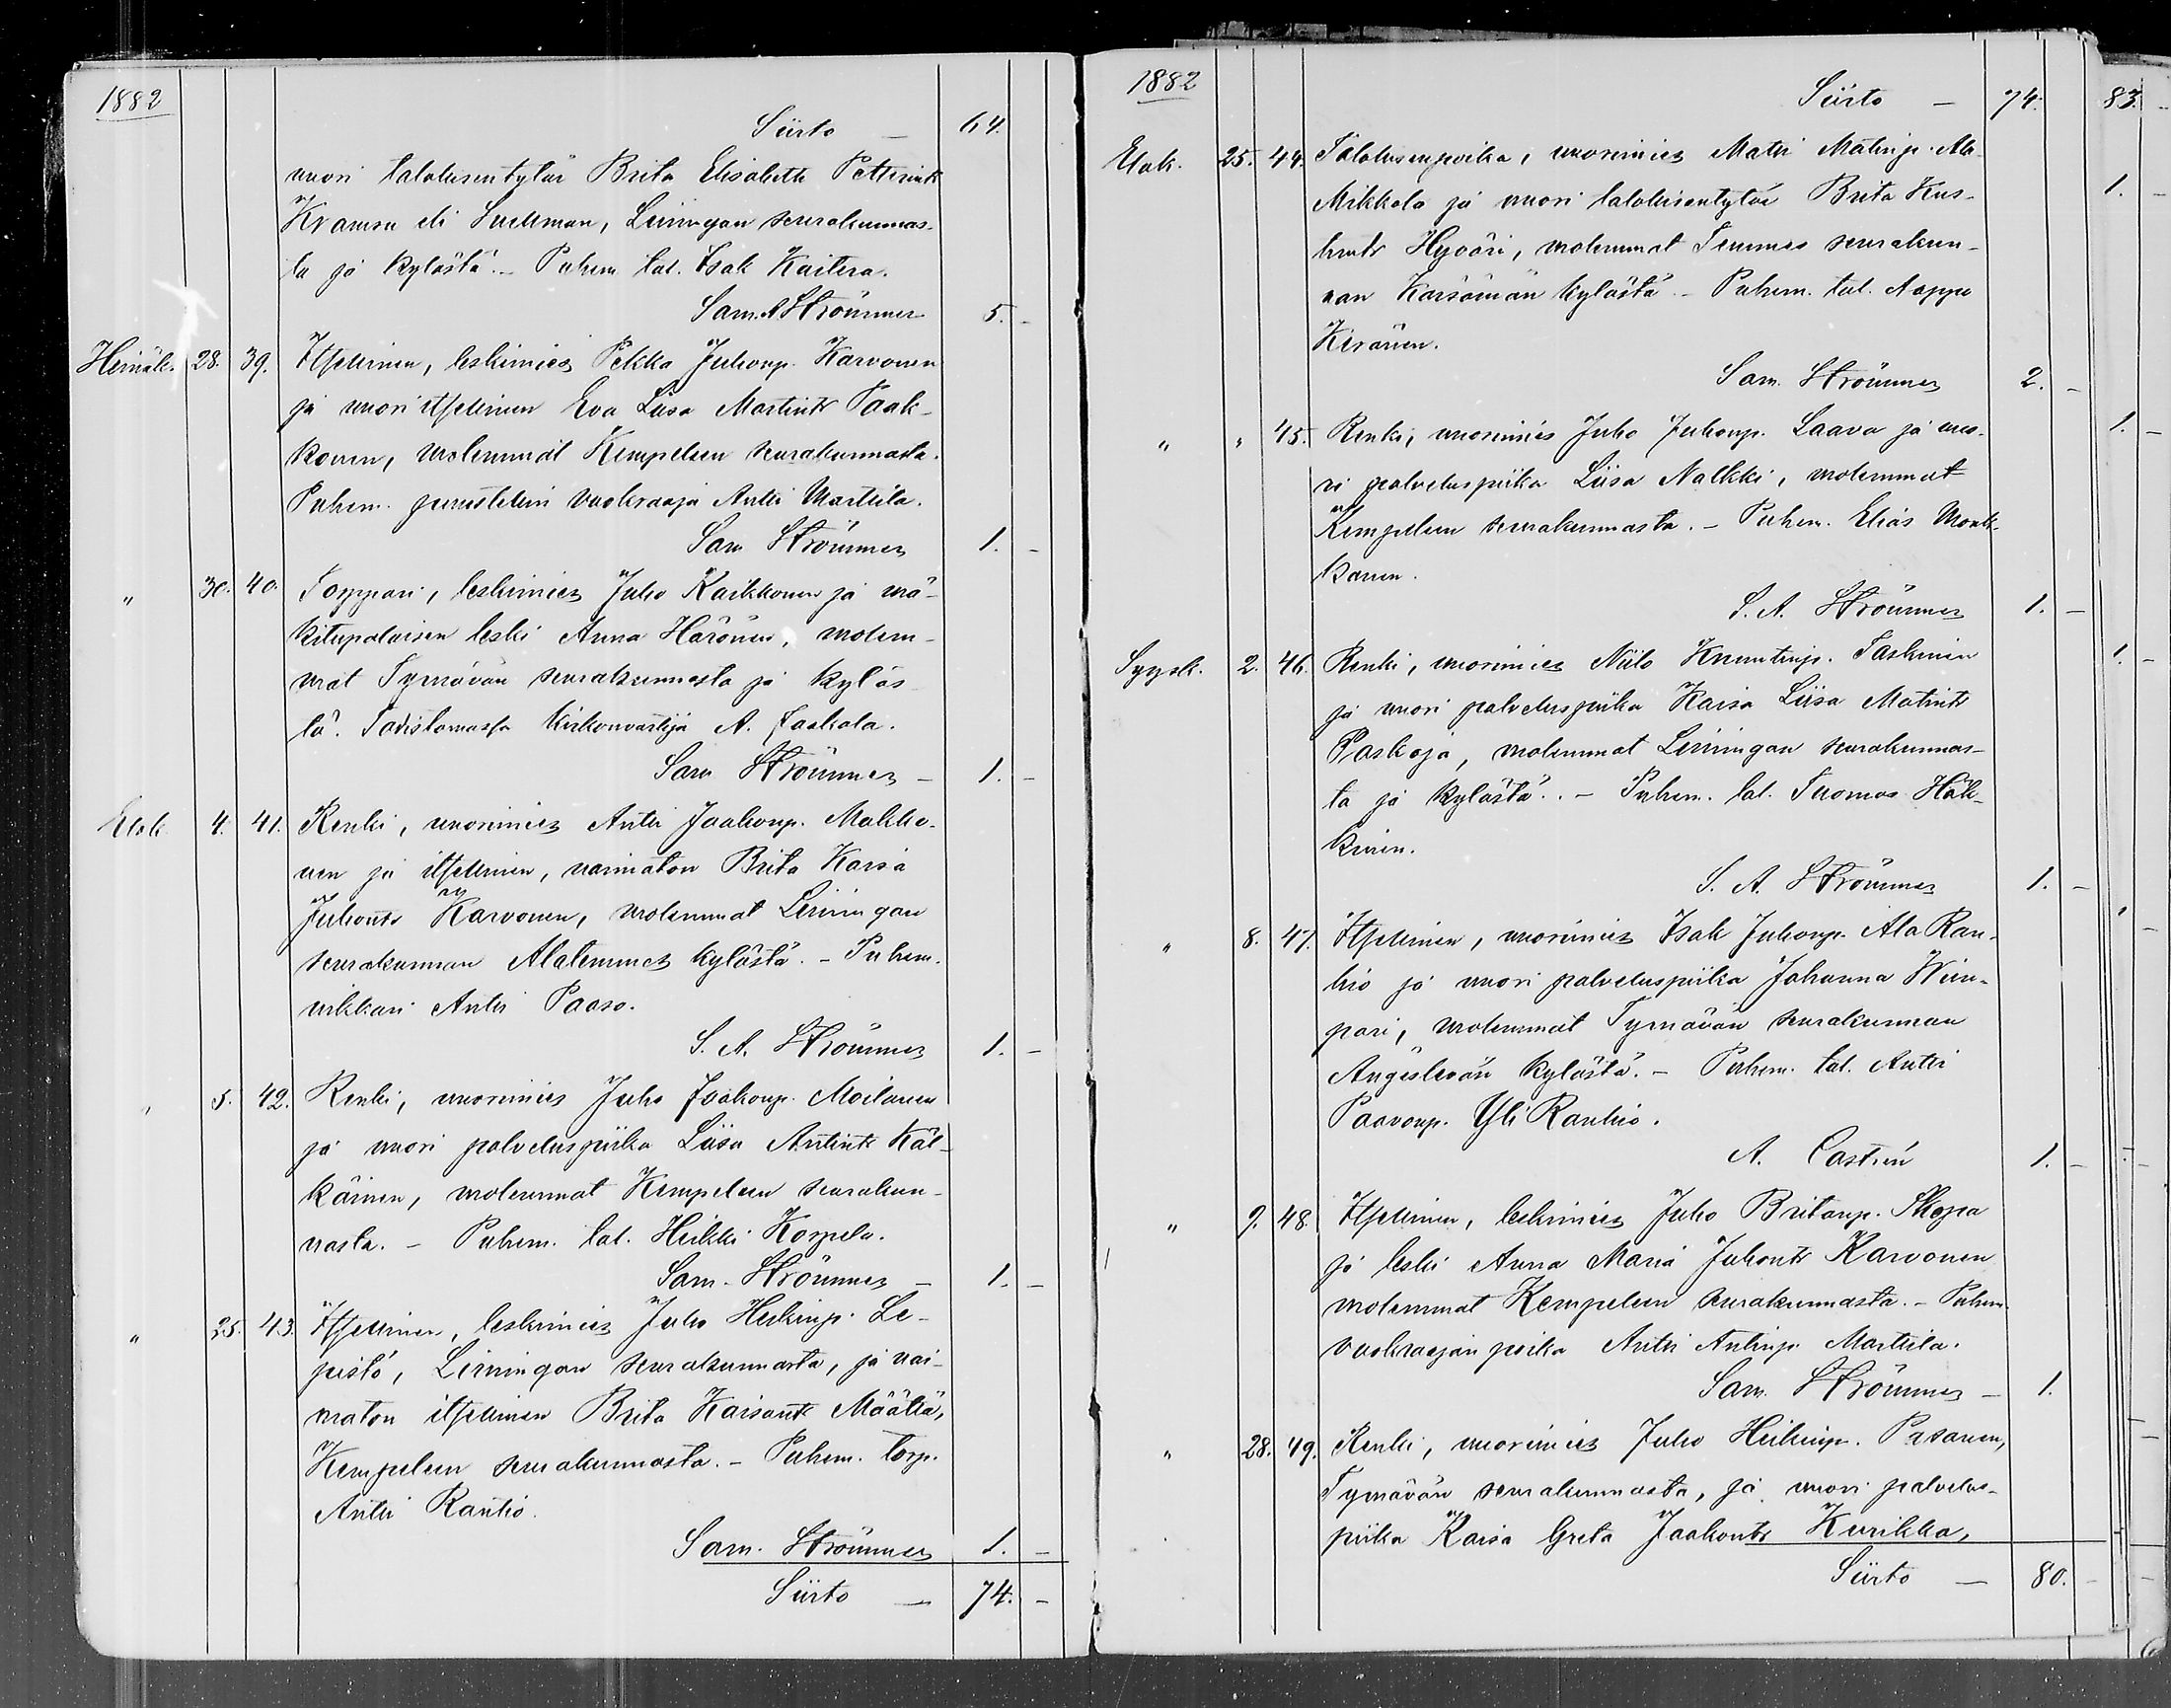 1882
Siirto — 64.
nuori talolisentytär Brita Elisabeth Petterintr
Kramsu eli Luukman, Limingan seurakunnas-
ta ja kylästä. – Puhem. tal. Isak Kaitera.
Sam. A. Strömmer 5. –
Heinäk. 28. 39. Itsellinen, leskimies Pekka Juhonp. Karvonen
ja nuori itsellinen Eva Liisa Martintr Paak-
konen, molemmat Kempeleen seurakunnasta.
Puhem. puustellin vuokraaja Antti Marttila.
Sam Strömmer 1. –
" 30. 40. Torppari, leskimies Juho Kaikkonen ja mä-
kitupalaisen leski Anna Härönen, molem-
mat Tyrnävän seurakunnasta ja kyläs
tä. Todistamassa kirkonvartija A. Jaakola.
Sam Strömmer – 1. –
Elok. 4. 41. Renki, nuorimies Antti Jaakonp. Makko-
nen ja itsellinen, naimaton Brita Kaisa
Juhontr Karvonen, molemmat Limingan
seurakunnan Alatemmes kylästä. – Puhem.
nikkari Antti Paaso.
S. A. Strömmer 1. –
" 5. 42. Renki, nuorimies Juho Jaakonp. Moilanen
ja nuori palveluspiika Liisa Antintr Käl-
käinen, molemmat Kempeleen seurakun-
nasta. – Puhem. tal. Heikki Korpela.
Sam. Strömmer – 1. –
" 25. 43. Itsellinen, leskimies Juho Heikinp. Le-
pistö, Limingan seurakunnasta, ja nai-
maton itsellinen Brita Kaisantr Määttä,
Kempeleen seurakunnasta. – Puhem. torp.
Antti Rantio.
Sam. Strömmer 1. –
Siirto — 74. –
1882
Siirto — 74. 83. –
Elok. 25. 44. Talolisenpoika, nuorimies Matti Matinp. Ala-
Mikkola ja nuori talolisentytär Brita Kus-
tintr Hyväri, molemmat Temmes seurakun-
nan Karsämän kylästä. – Puhem. tal. Aappo
Keränen.
Sam. Strömmer 2. –
" " 45. Renki, nuorimies Juho Juhonp. Laava ja nuo-
ri palveluspiika Liisa Nalkki, molemmat
Kempeleen seurakunnasta. – Puhem. Elias Monk-
konen.
S. A. Strömmer 1. –
Syysk. 2. 46. Renki, nuorimies Niilo Knuutinp. Taskinen
ja nuori palveluspiika Kaisa Liisa Matintr
Paskoja, molemmat Limingan seurakunnas-
ta ja kylästä. – Puhem. tal. Tuomas Häk-
kinen.
S. A. Strömmer 1. –
" 8. 47. Itsellinen, nuorimies Isak Juhonp. Ala Ran-
kio ja nuori palveluspiika Johanna Wiin-
pori, molemmat Tyrnävän seurakunnan
Ängeslevän kylästä. – Puhem. tal. Antti
Paavonp. Yli Rankio.
A. Castrén 1. –
" 9. 48. Itsellinen, leskimies Juho Britanp. Skopa
ja leski Anna Maria Juhontr Karvonen
molemmat Kempeleen seurakunnasta. – Puhem.
vuokraajan poika Antti Antinp. Marttila.
Sam. Strömmer – 1.
" 28. 49. Renki, nuorimies Juho Heikinp. Pasanen,
Tyrnävän seurakunnasta, ja nuori palvelus-
piika Kaisa Greta Jaakontr Kurikka,
Siirto — 80. –